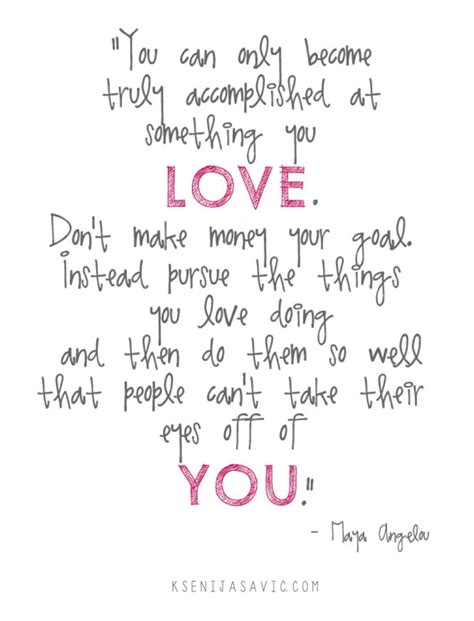 "You can only become
truly accomplished at
something you
LOVE.
Don't make money your goal.
Instead pursue the things
you love doing
and then do them so well
that people can't take their
eyes off of
YOU."
- Maya Angelou
KSENIJASAVIC.COM